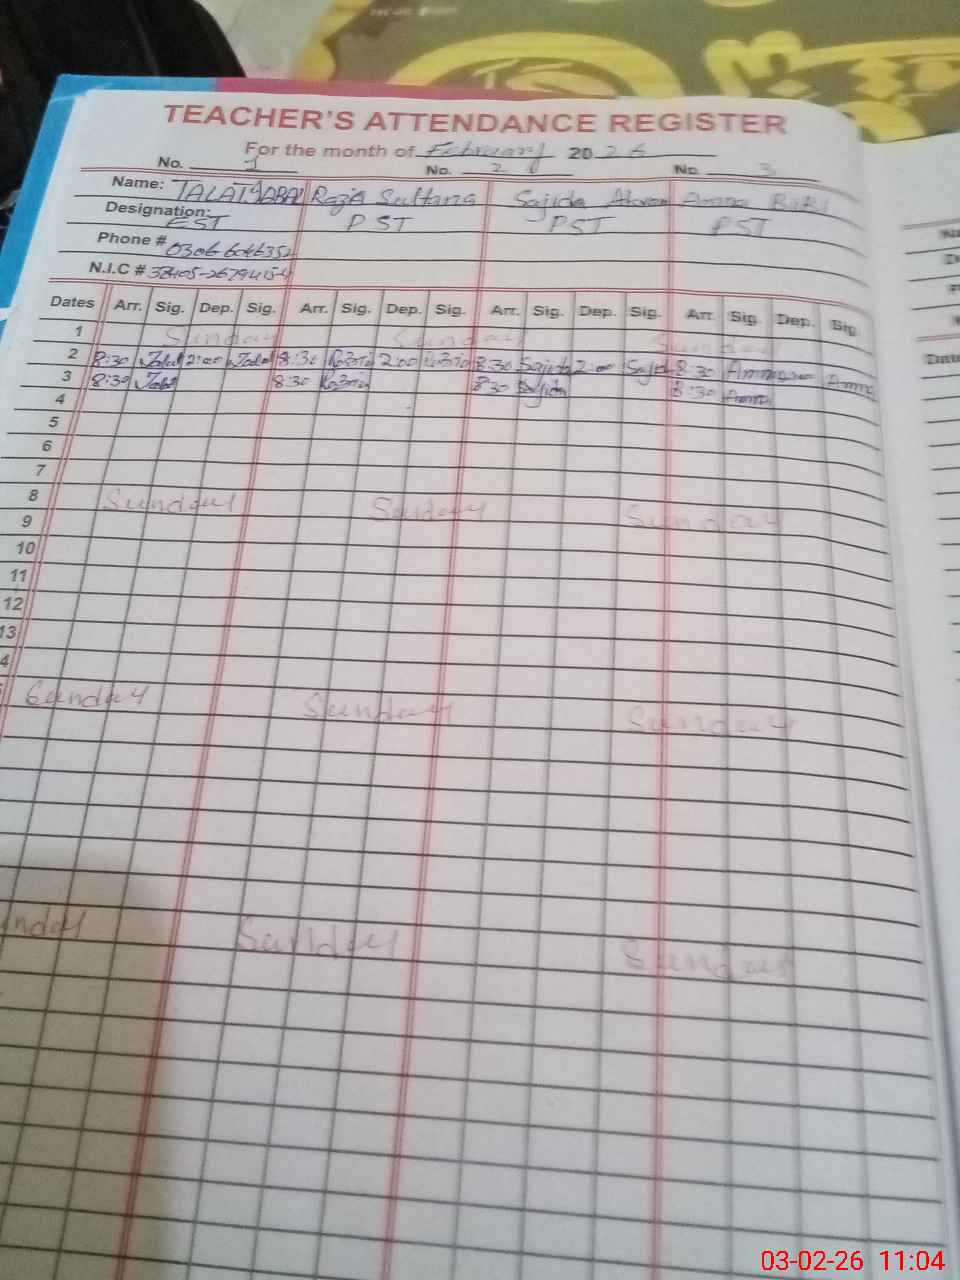 TEACHER'S ATTENDANCE REGISTER
For the month of February 2026
No. 1 No. 2 No. 3
Name: Sultana Sajida Amna BiBi
Designation: EST PST PST PST
Phone #
N.I.C #
Dates Arr. Sig. Dep. Sig. Arr. Sig. Dep. Sig. Arr. Sig. Dep. Sig. Arr. Sig. Dep. Sig
1 Sunday Sunday Sunday
2 8:30 2:00 8:30 2:00 8:30 Sajida 2:00 Sajida 8:30 Amna Amna
3 8:30 8:30 8:30 Sajida 8:30 Amna
4
5
6
7
8 Sunday Sunday Sunday
9
10
11
12
13
4
Sunday Sunday Sunday
nday Sunday Sunday
03-02-26 11:04